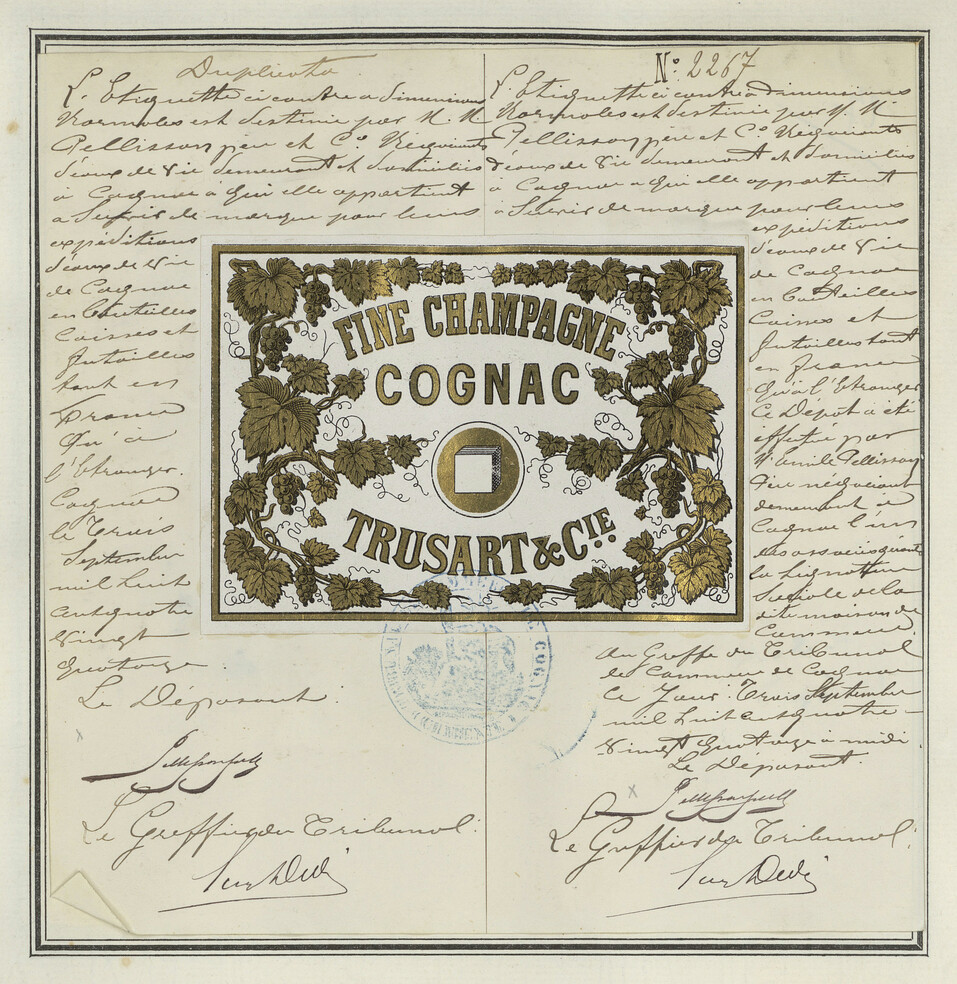 Duplicata
L'Etiquette ci contre a dimensions
Normales est destinée par M. M.
Pellisson père et Co Négociants
d'eaux de Vie demeurant et domiciliés
à Cognac à qui elle appartient
a Servir de marque pour leurs
expéditions
d'eaux de Vie
de Cognac
en bouteilles
Caisses et
futailles
tant en
France
qu'à
l'Etranger.
Cognac
le Trois
Septembre
mil huit
cent quatre
Vingt
quatorze
Le Déposant:
Le Greffier du Tribunal:
N° 2267
L'Etiquette ci contre à dimensions
Normales est destinée par M. M.
Pellisson père et Co Négociants
d'eaux de Vie demeurant et domiciliés
à Cognac a qui elle appartient
à Servir de marque pour leurs
expéditions
d'eaux de Vie
de Cognac
en bouteilles
Caisses et
futailles tant
en France
qu'à l'Etranger
Ce Dépôt a été
effectué par
M. Emile Pellisson
négociant
demeurant à
Cognac l'un
des associés gérant
la Signature
Sociale de la
dite maison de
Commerce.
Au Greffe du Tribunal
de Commerce de Cognac
Ce Jour: Trois Septembre
mil huit cent quatre-
Vingt quatorze à midi
Le Déposant.
Le Greffier du Tribunal:
FINE CHAMPAGNE
COGNAC
TRUSART & CIE.